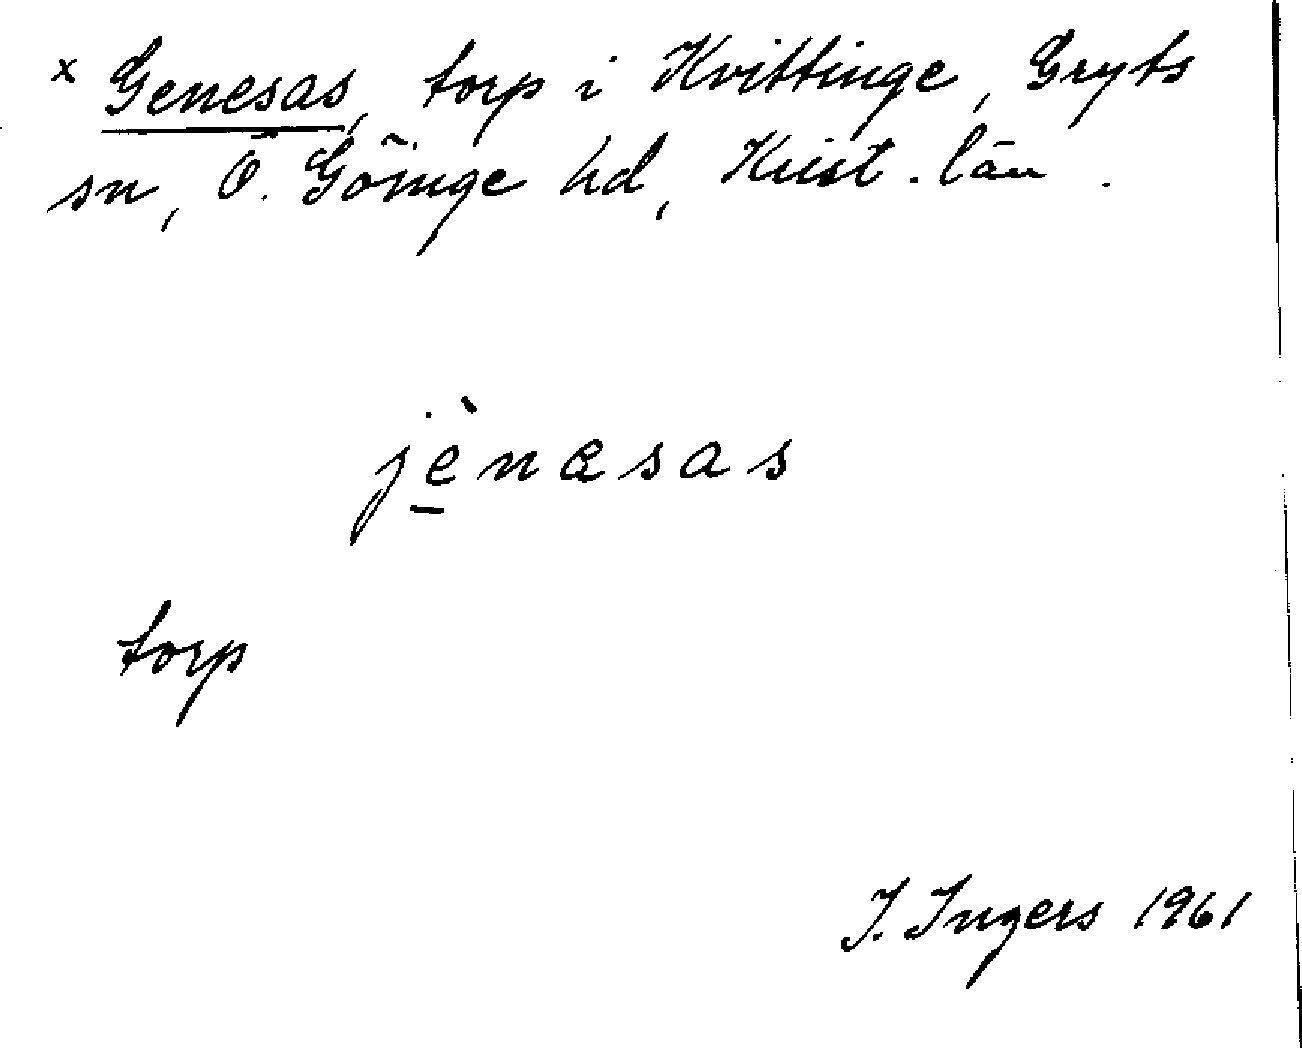 x Genesas, torp i Kvittinge, Gryts
sn, Ö. Göinge hd, Krist. län.
jènæsas
torp
I. Ingers 1961